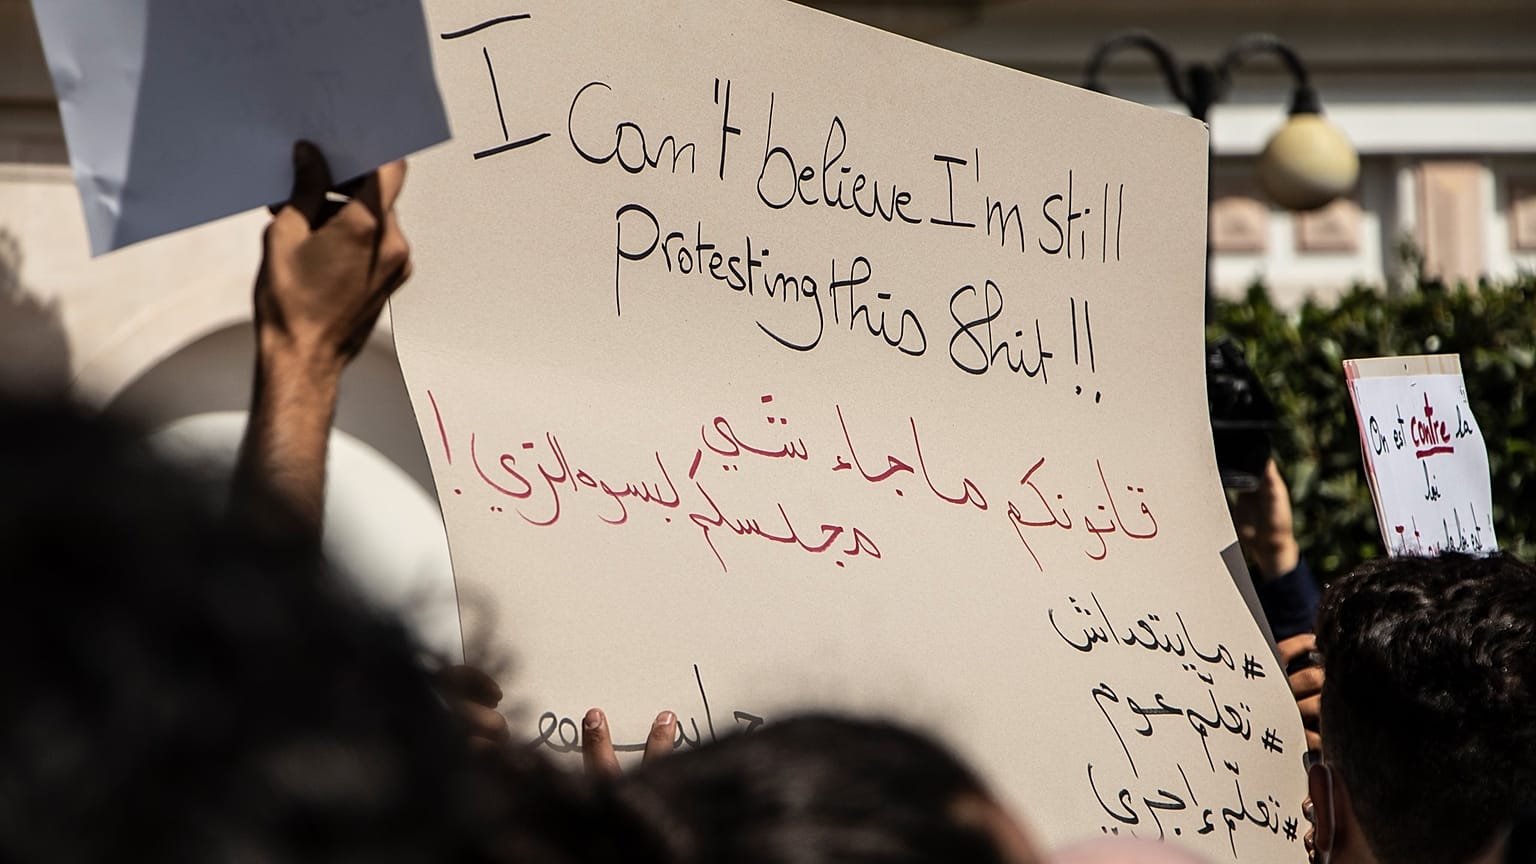 I Can't believe I'm still
Protesting this Shit!!
قانونكم ماجاء شي
مجلسكم لبسوه الزي!
#مايتعداش
#تعلّم عوم
#تعلّم إجري
On est contre la
loi